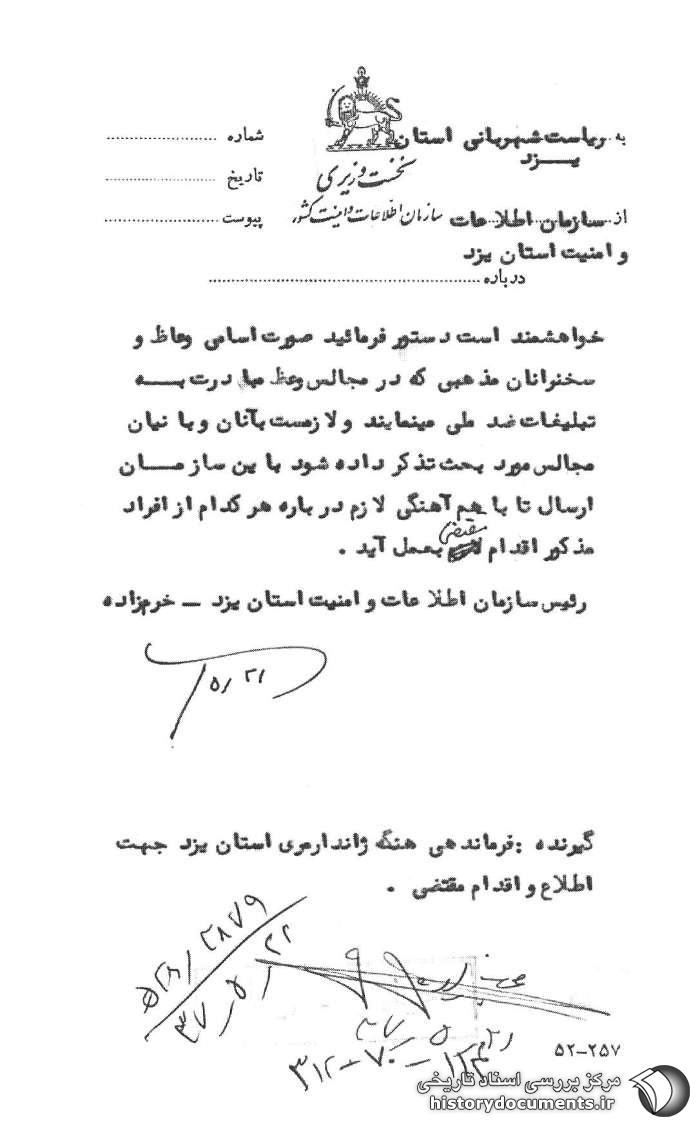 به ریاست شهربانی استان
یزد
شماره
نخست وزیری
تاریخ
از سازمان اطلاعات
سازمان اطلاعات و امنیت کشور
پیوست
و امنیت استان یزد
درباره
خواهشمند است دستور فرمائید صورت اسامی وعاظ و
سخنرانان مذهبی که در مجالس وعظ مبادرت به
تبلیغات ضد ملی مینمایند ولازمست بآنان و با نیان
مجالس مورد بحث تذکر داده شود باین سازمان
ارسال تا با هم آهنگی لازم درباره هرکدام از افراد
مقتضی
مذکور اقدام بعمل آید .
رئیس سازمان اطلاعات و امنیت استان یزد – خرم‌زاده
۵/۲۱
گیرنده : فرماندهی هنگ ژاندارمری استان یزد جهت
اطلاع و اقدام مقتضی .
۳۷-۵-۲۱
۳۱۲-۷۰-۱۲۴
۵۲-۲۵۷
مرکز بررسی اسناد تاریخی
historydocuments.ir